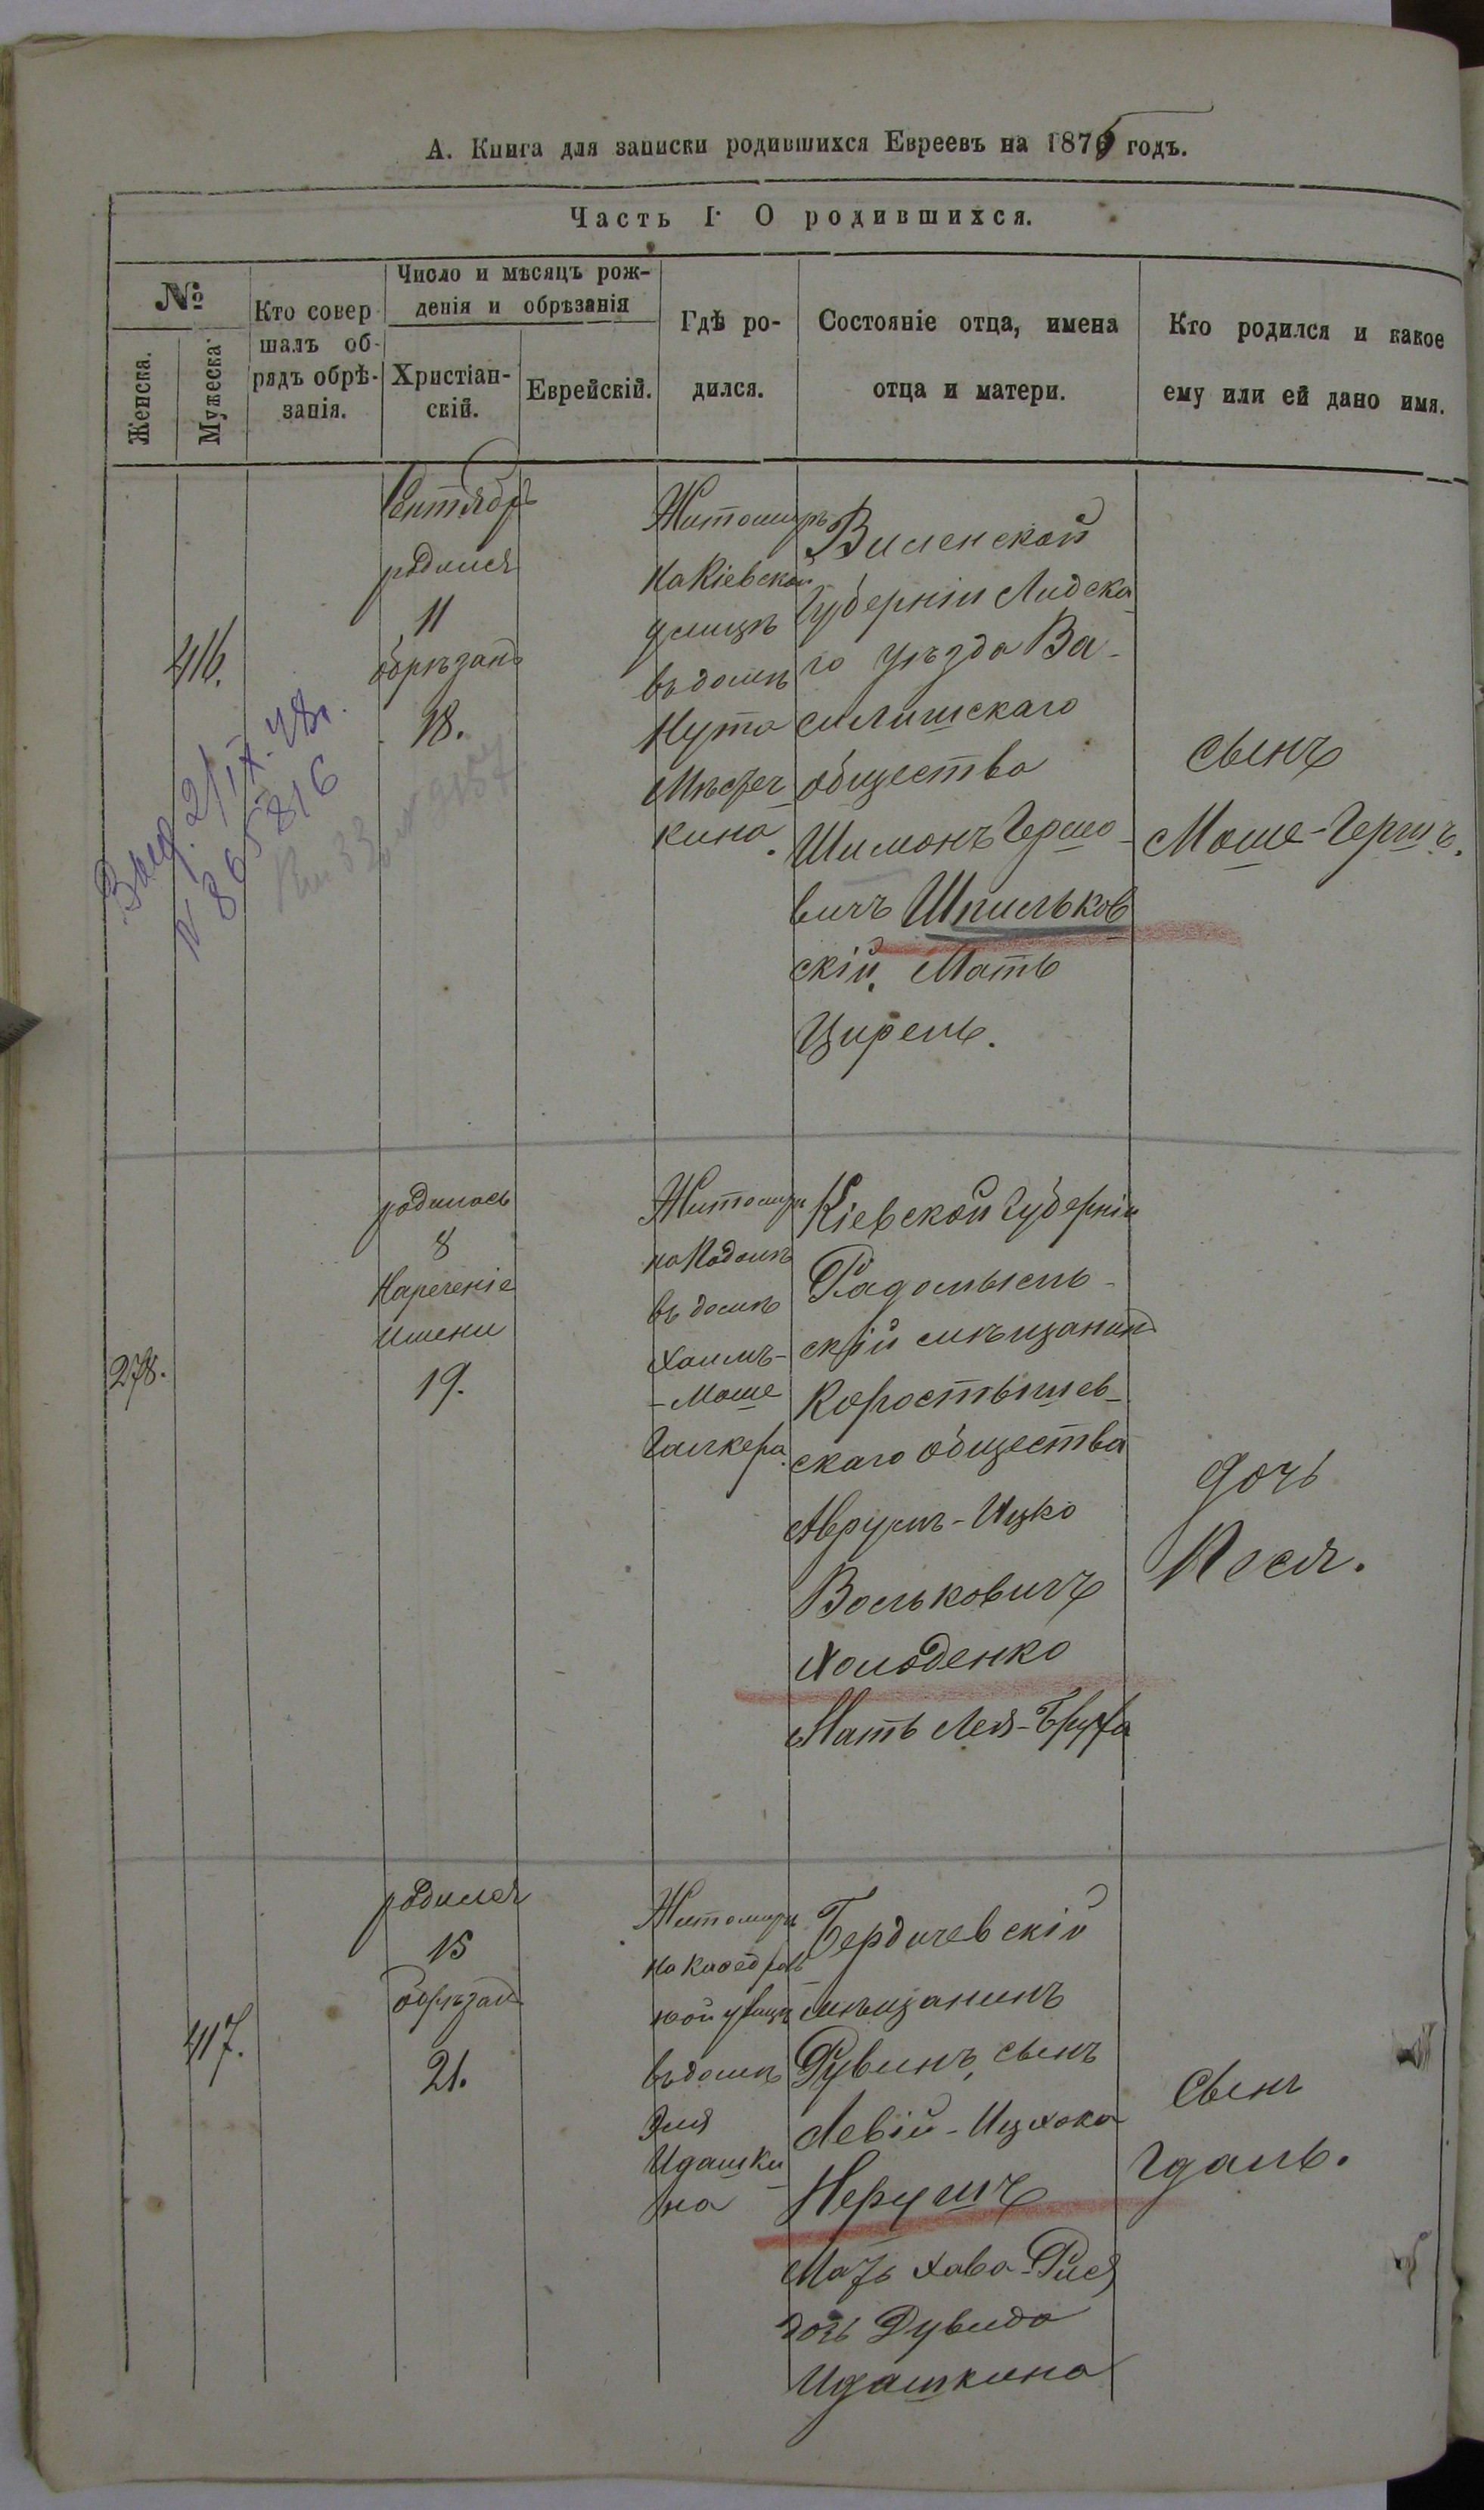 А. Книга для записки родившихся Евреевъ на 1875 годъ.
Часть I. О родившихся.
№
Женска.
Мужеска.
Кто совер
шалъ об-
рядъ обрѣ-
занія.
Число и мѣсяцъ рож-
денія и обрѣзанія
Христіан-
скій.
Еврейскій.
Гдѣ ро-
дился.
Состояніе отца, имена
отца и матери.
Кто родился и какое
ему или ей дано имя.
416.
Сентябрь
родился
11
обрѣзанъ
18.
Житомиръ
на Кіевской
улицѣ
въ домѣ
Нута
кина.
Виленской
Губерніи Лидска
го уѣзда Ва-
силишскаго
общества
Шимонъ Гершо-
вичъ Шпильков
скій. Мать
Цирель.
сынъ
Моше-Гершъ.
2/IX.48г.
N 865816
278.
родилась
8
Нареченіе
имени
19.
Житомиръ
на Подолѣ
въ домѣ
Хаимъ-
-Моше
Галкера.
Кіевской Губерніи
Радомысль-
скій мѣщанинъ
Коростышев-
скаго общества
Аврумъ-Ицко
Вольковичъ
Холоденко
Мать Лея-Бруха
дочь
Песя.
417.
родился
15
обрѣзанъ
21.
Житомиръ
на Каѳедраль
ной улицѣ
въ домѣ
Эля
Идашки
на
Бердичевскій
мѣщанинъ
Рувинъ, сынъ
Левій-Ицхока
Нерушъ
Мать Хава-Рися
дочь Дувида
Идашкина
Сынъ
Гдаль.